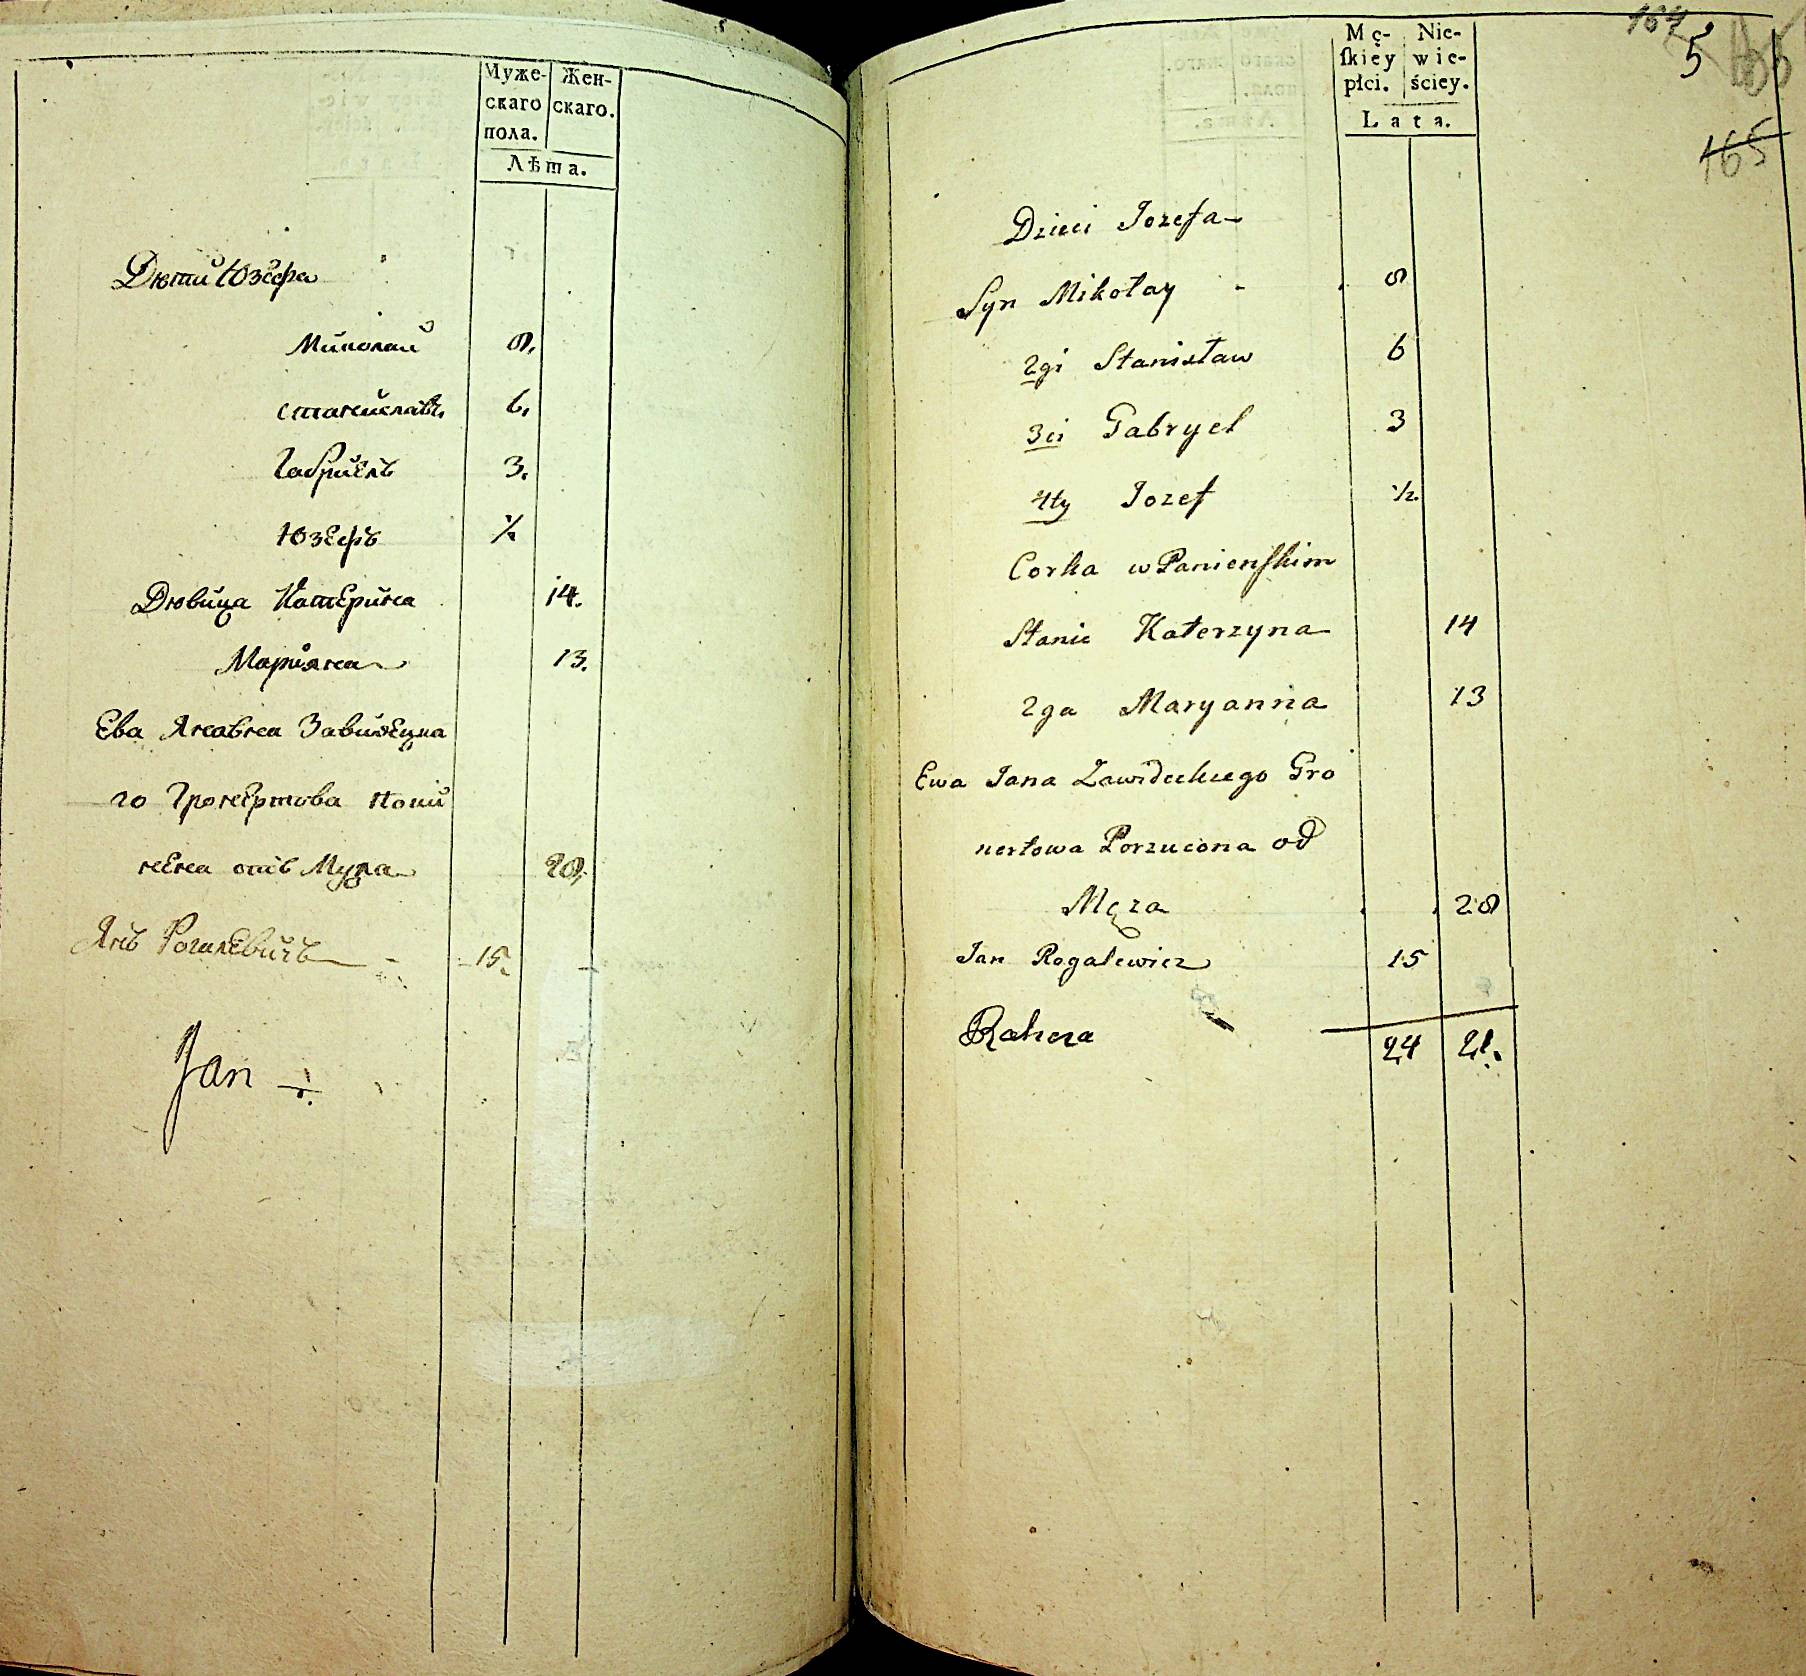 Муже- Жен-
скаго скаго.
пола.
Лѣта.
Дѣти Юзефа
Миколай 8.
Станиславъ 6.
Габриель 3.
Юзефъ ½
Дѣвица Катерина 14.
Марiяна 13.
Ева Янавна Завидецка
го Гронертова Кони
нена отъ Мужа 28.
Янъ Рогалевичъ 15.
Jan
164
5
165
Mę- Nie-
ſkiey wie-
płci. ściey.
Lata.
Dzieci Jozefa
Syn Mikołay 8
2gi Stanisław 6
3ci Gabryel 3
4ty Jozef ½.
Corka w Panienſkim
Stanie Katerzyna 14
2ga Maryanna 13
Ewa Jana Zawideckiego Gro
nertowa Porzucona od
Męza 28
Jan Rogalewicz 15
24 21.